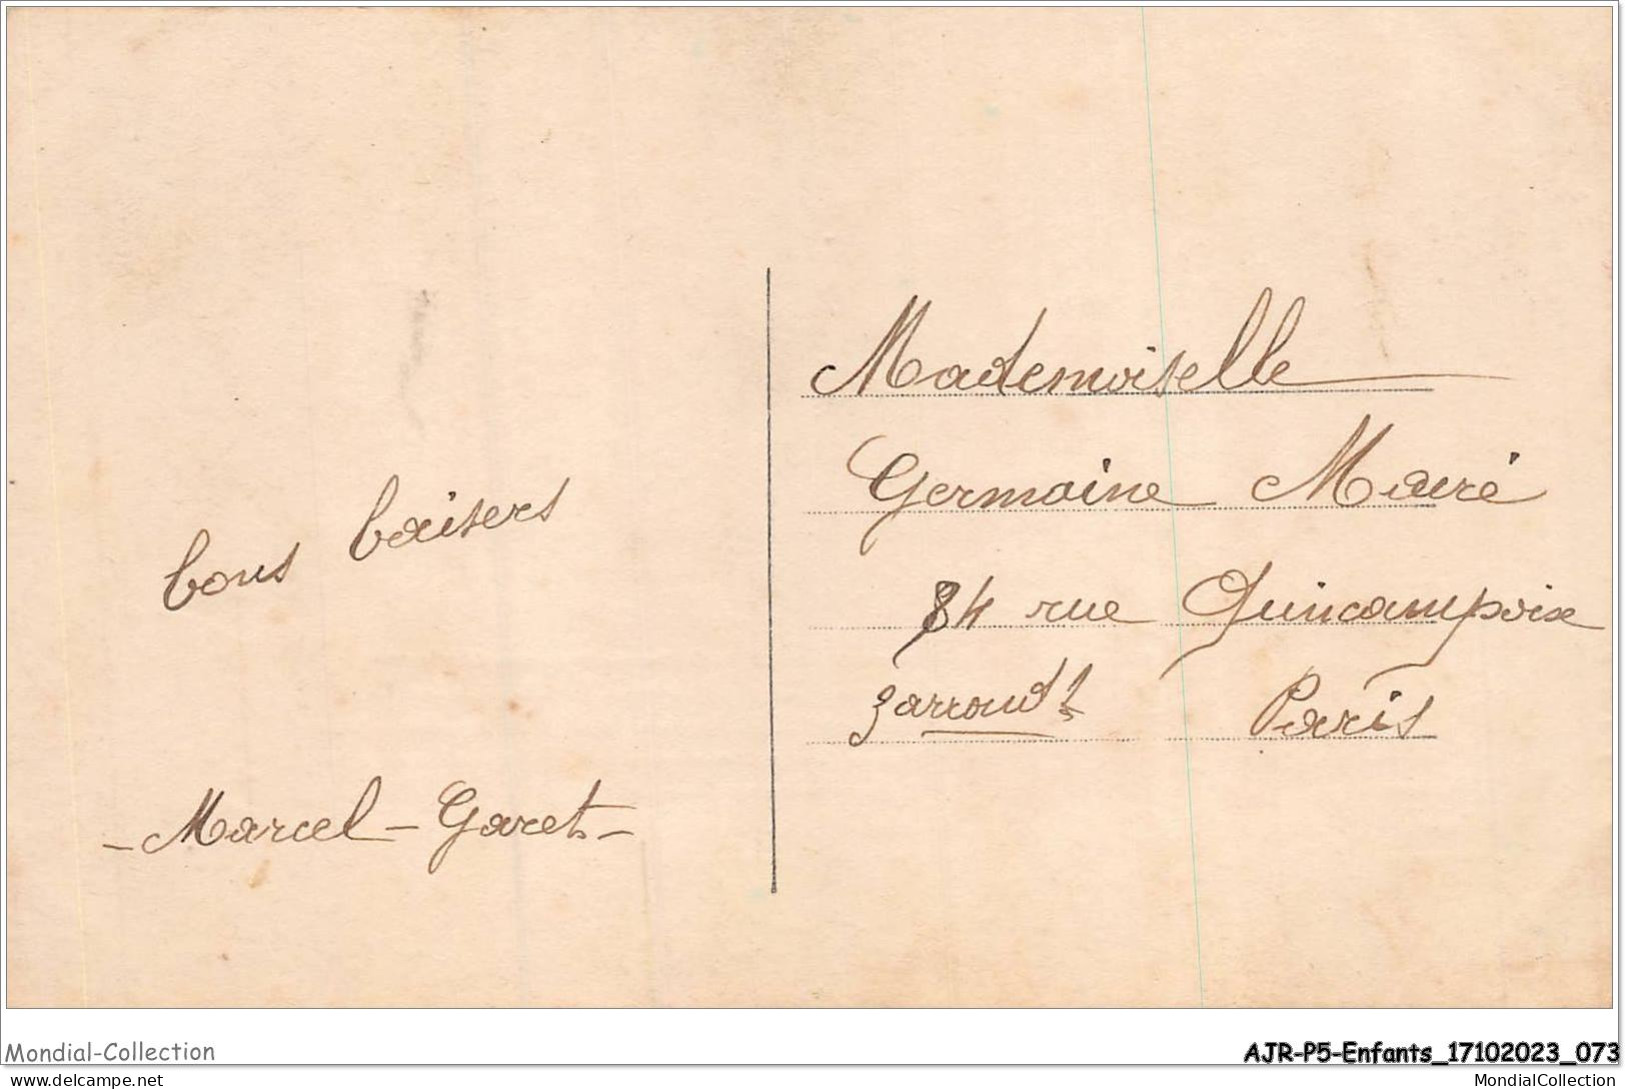 bons baisers
- Marcel - Garet -
Mademoiselle
Germaine
84 rue Quincampoix
3 arrondt Paris
Mondial-Collection
AJR-P5-Enfants_17102023_073
delcampe.net
MondialCollection